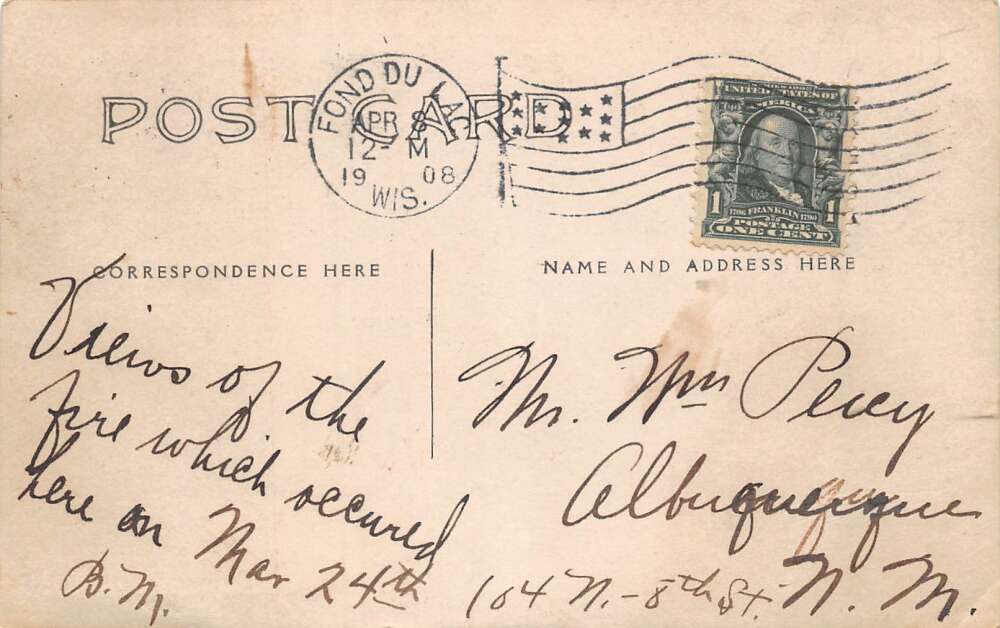 POST CARD
FOND DU L
APR 8
12-M
19 08
WIS.
UNITED STATES OF
AMERICA
1 1706 FRANKLIN 1790 1
POSTAGE
ONE CENT
CORRESPONDENCE HERE
NAME AND ADDRESS HERE
Views of the
fire which
here on occured
Mar 24th
B.M.
Mr. Wm Percy
Albuquerque
104 N.-8th St. N. M.